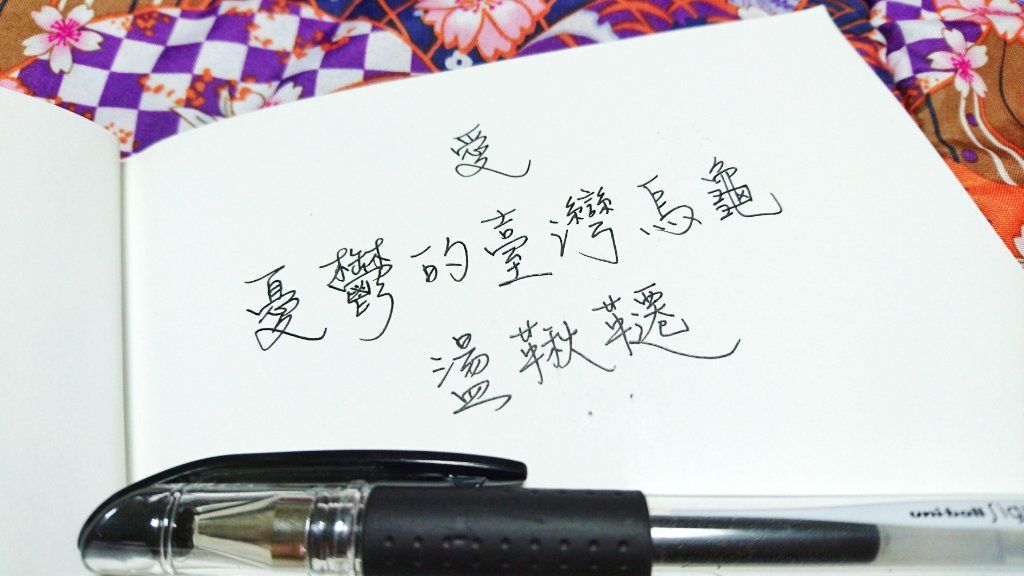 愛
憂鬱的臺灣烏龜
盪鞦韆
uni-ball